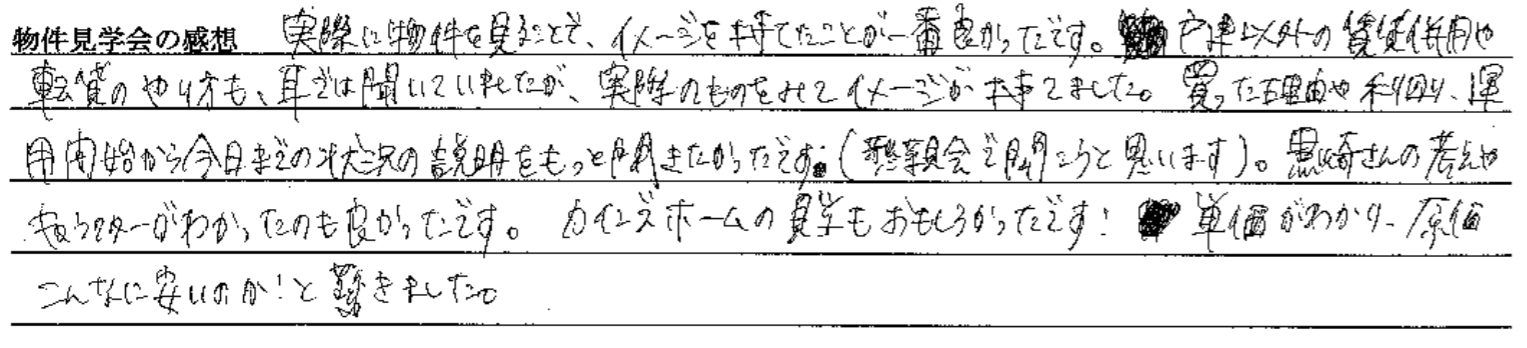 物件見学会の感想 実際に物件を見ることで、イメージを持てたことが一番良かったです。戸建以外の賃貸併用や
転貸のやり方も、耳では聞いていましたが、実際のものをみてイメージが持てました。買った理由や利回り、運
用開始から今日までの状況の説明をもっと聞きたかったです。(懇親会で聞こうと思います)。黒崎さんの考えや
キャラクターがわかったのも良かったです。カインズホームの見学もおもしろかったです! 単価がわかり、原価
こんなに安いのか!と驚きました。